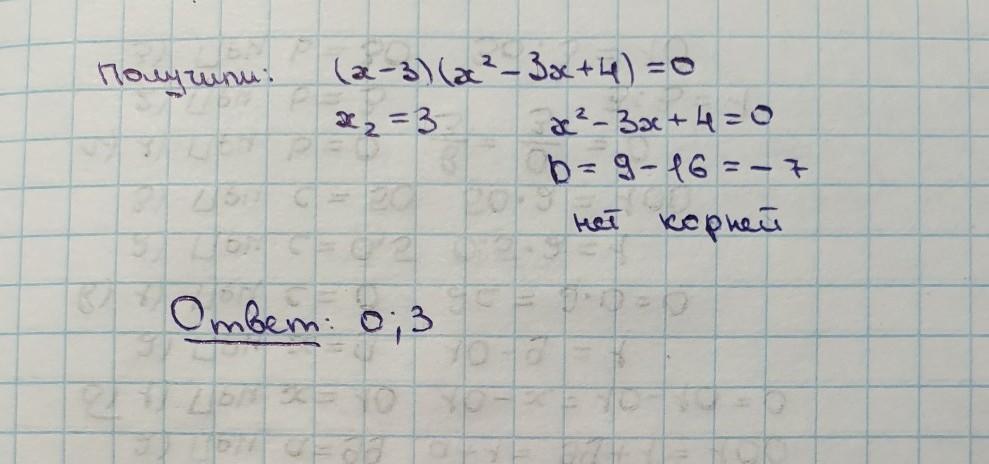 Получили: (x-3)(x²-3x+4)=0
x₂=3 x²-3x+4=0
D=9-16=-7
нет корней
Ответ: 0;3